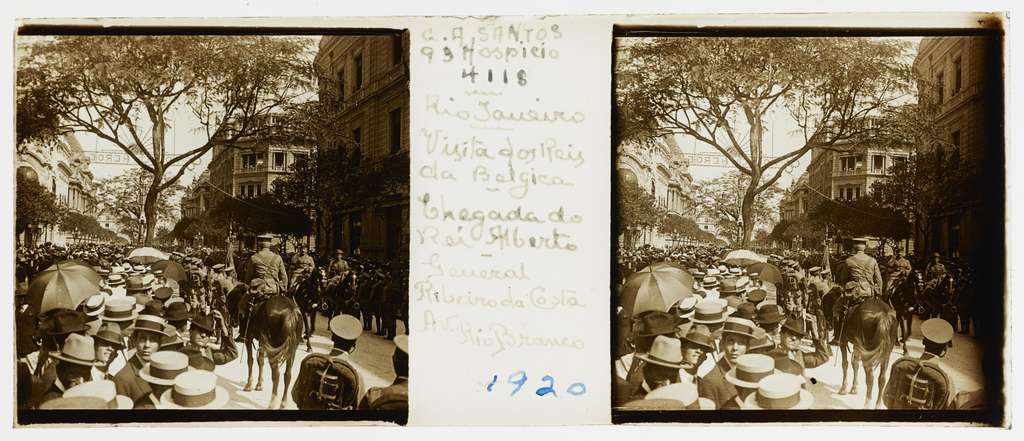 C. A. SANTOS
93 Hospicio
4118
Rio Janeiro
Visita dos Reis
da Belgica
Chegada do
Rei Alberto
General
Ribeiro da Costa
Av. Rio Branco
1920